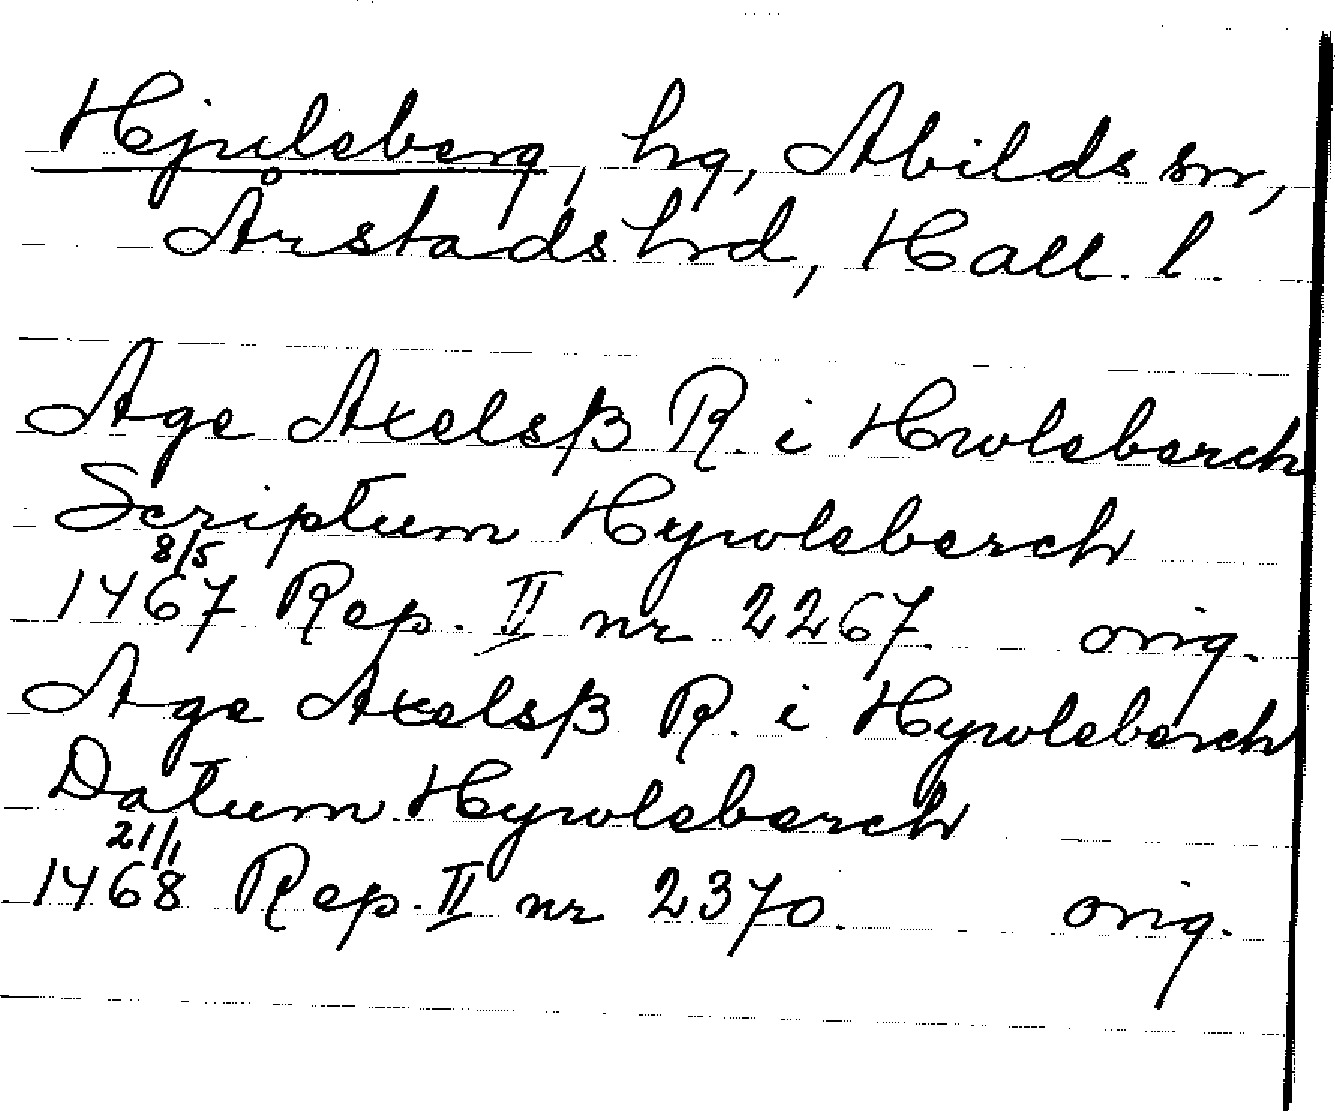 Hjuleberg, hrg, Abilds sn,
Årstads hrd, Hall. l.
Age Axelsß R. i Hwleberch
Scriptum Hywleberch
8/5
1467 Rep. II nr 2267. orig.
Age Axelsß R. i Hywleberch
Datum Hywleberch
21/1
1468 Rep. II nr 2370. orig.